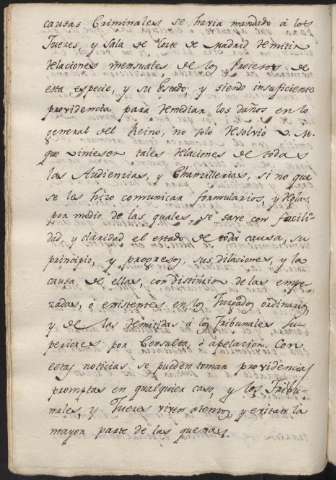 causas Criminales se havia mandado á los
Jueces, y Sala de Corte de Madrid remitir
relaciones mensuales de los Procesos de
esta especie, y su Estado, y siendo insuficiente
providencia para remediar los daños en lo
general del Reino, no solo resolvió V. M.
que viniesen tales relaciones de todas
las Audiencias, y Chancillerias, si no que
se les hizo comunicar formularios, y reglas,
por medio de las quales, se save con facili-
dad, y claridad el estado de toda causa, su
principio, y progreso, sus dilaciones, y la
causa de ellas, con distincion de las empe-
zadas, ó existentes en los Juzgados ordinarios
y de las remitidas á los Tribunales Su-
periores por Consulta, ó apelacion. Con
estas noticias se pueden tomar providencias
promptas en qualquier caso, y los Tribu-
nales, y Jueces viven atentos, y evitan la
mayor parte de las quejas.